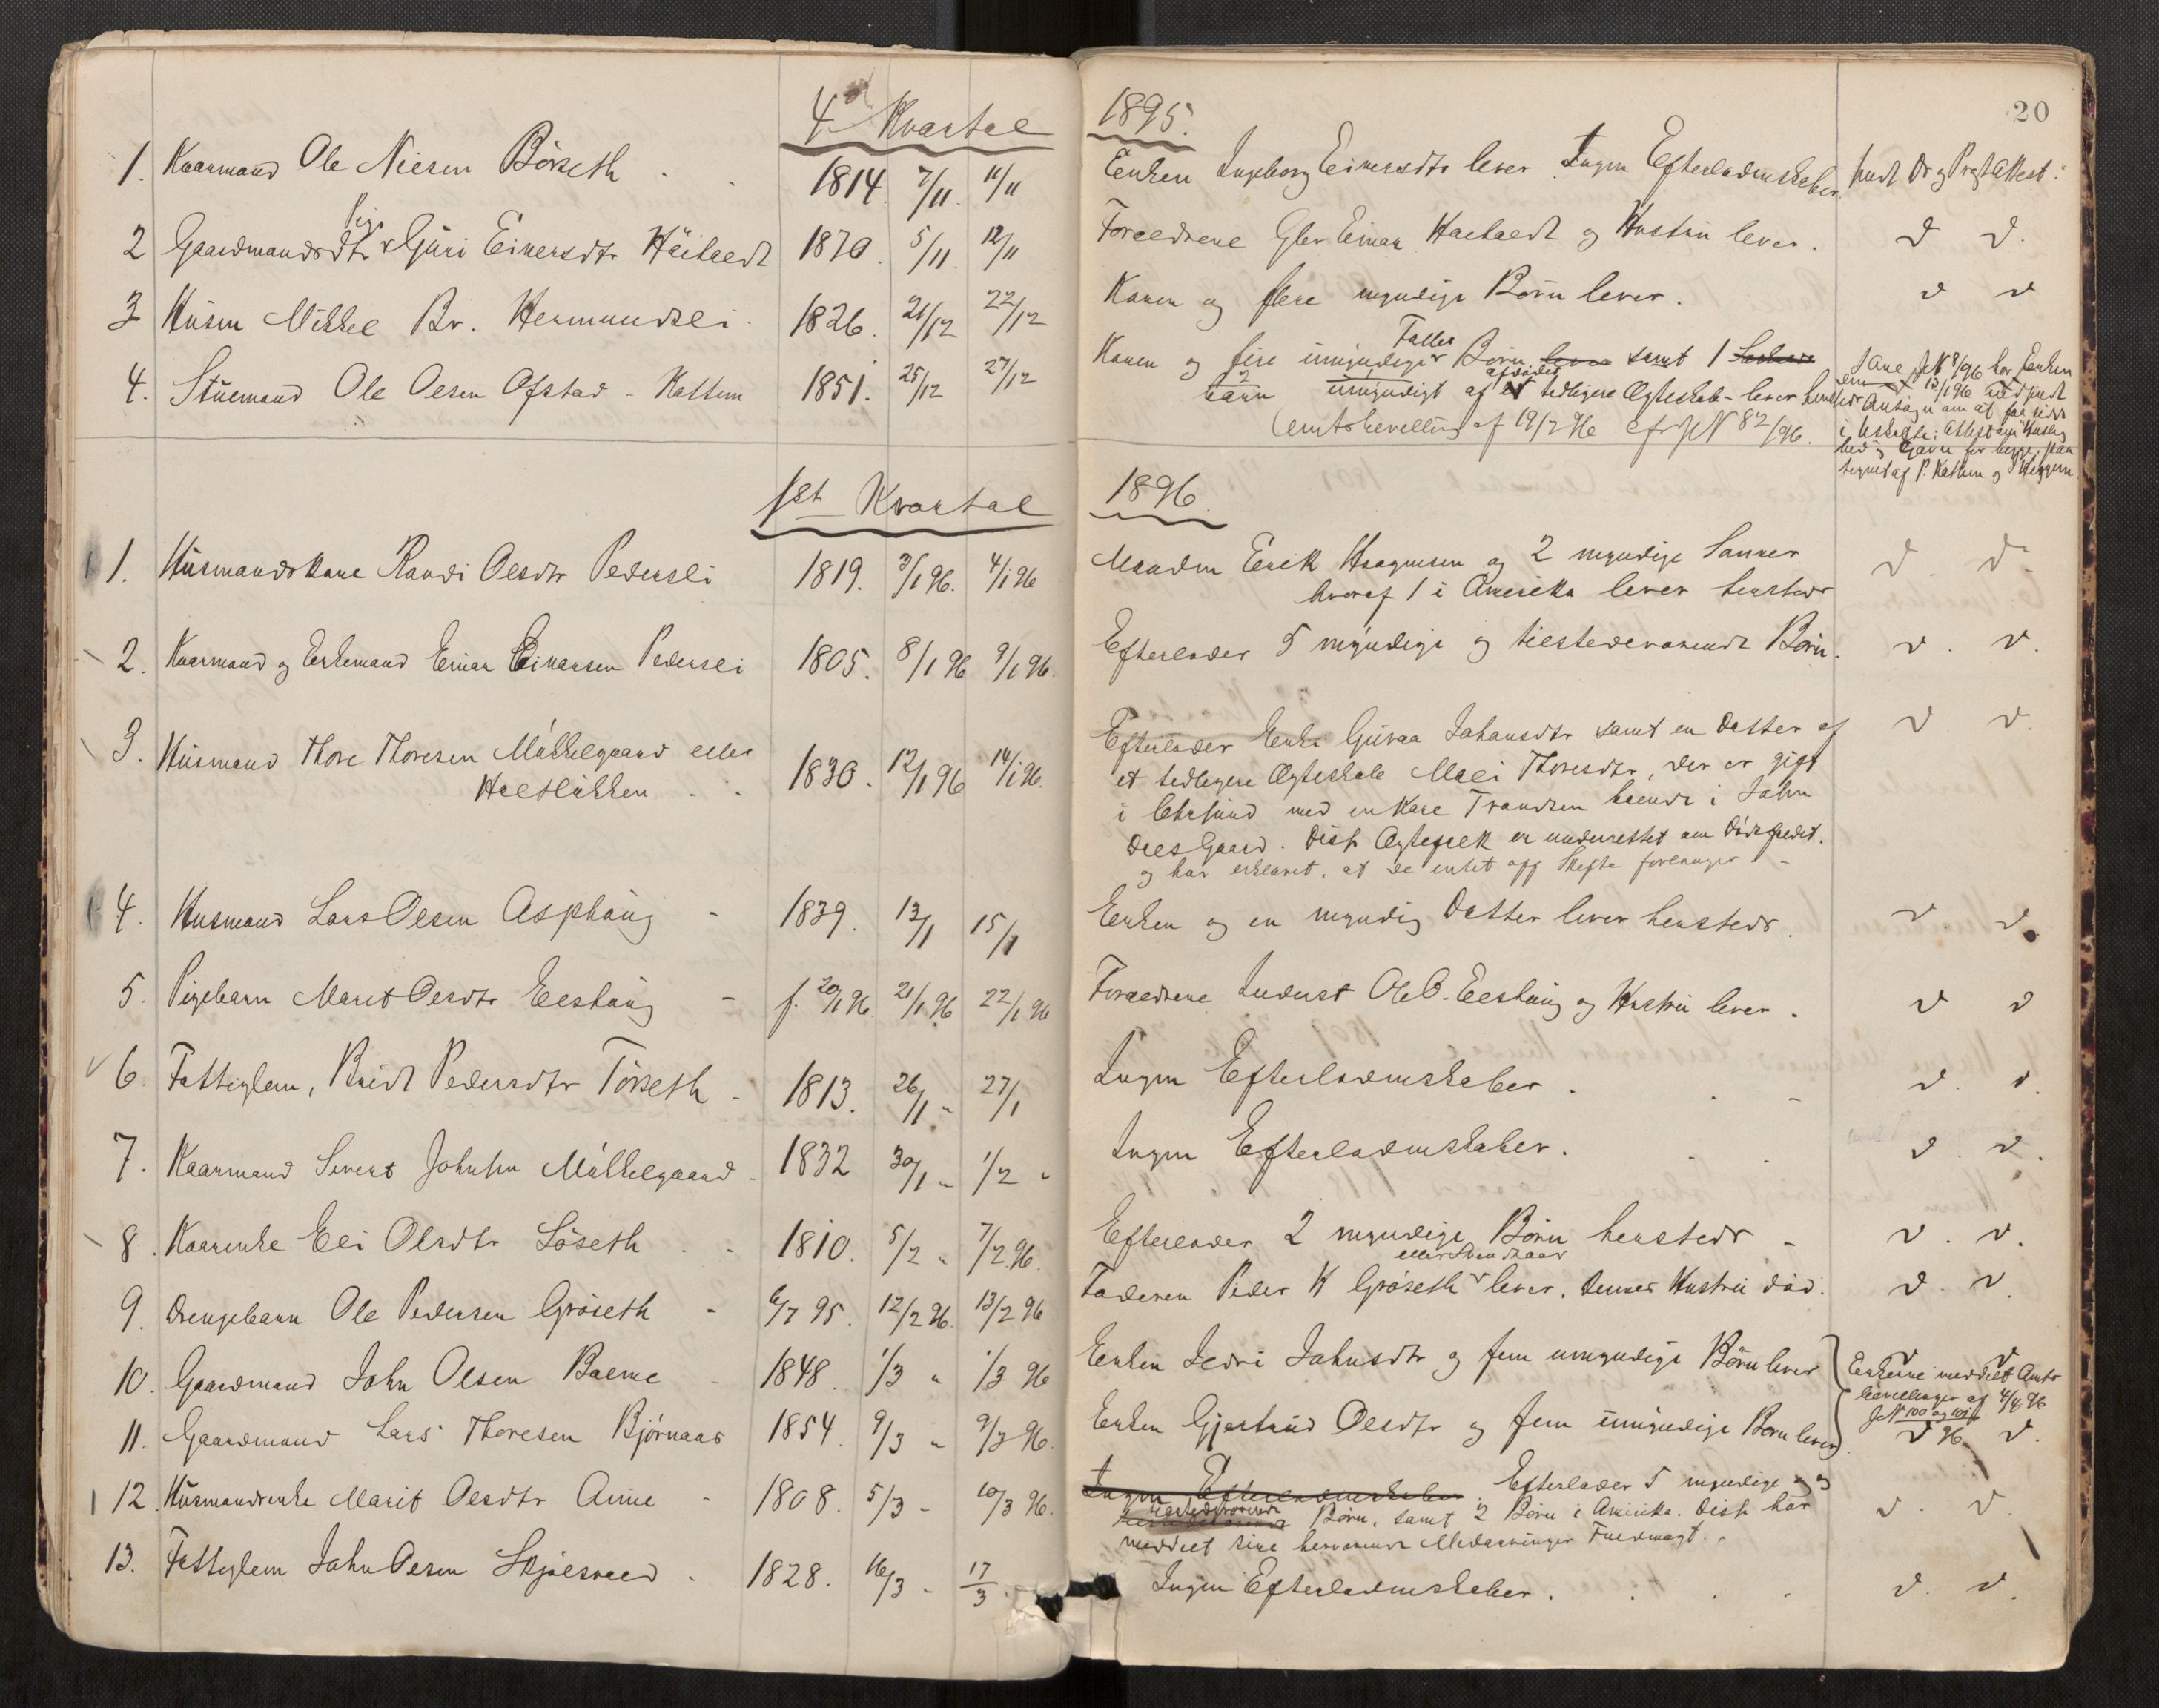 4de Kvartal
1. Kaarmand Ole Nielsen Börseth 1814. 7/11. 11/11
Pige
2 Gaardmandsdtr Guri Einersdtr Häihaedt 1870. 5/11. 12/11
3 Husm Mikkel Br. Hermundsli 1826. 21/12 22/12
4. Stuemand Ole Olsen Ofstad - Kattem 1851. 25/12 27/12
1st Kvartal
1. Husmandskone Randi Olsdtr Pedersli 1819. 3/1 96. 4/1 96
2. Kaarmand og Enkemand Einar Einarsen Pedersli 1805. 8/1 96 9/1 96.
3. Husmand Thore Thoresen Mükkelgaard eller
Haltlükken 1830. 12/1 96 14/1 96.
4. Husmand Lars Olsen Asphaug - 1839. 13/1 15/1
5. Pigebarn Marit Olsdtr Elshaug - f. 20/1 96 21/1 96 22/1 96
6. Fattiglem, Beret Pedersdtr Törseth - 1813. 26/1 " 27/1
7. Kaarmand Sivert Johnsen Mükkelgaard - 1832 30/1 " 1/2 "
8. Kaarenke Eli Olsdtr Löseth 1810. 5/2 " 7/2 96.
9. Drengebarn Ole Pedersen Gröseth - 6/7 95. 12/2 96. 13/2 96
10. Gaardmand John Olsen Bolme 1848. 1/3 " 1/3 96
11. Gaardmand Lars Thoresen Bjørnaas 1854. 9/3 " 9/3 96.
12. Husmandsenke Marit Olsdtr Aune - 1808. 5/3 - 10/3 96.
13. Fattiglem John Olsen Skjölsvold - 1828. 16/3 - 17/3
20
1895.
Enken Ingeborg Einersdtr lever. Ingen Efterladenskaber.
Forældrene Gbr Einar Haehaedt og Hustru lever.
Konen og flere myndige Børn lever.
Fælles
Konen og fire umyndige Børn lever samt 1
afdøde
barn umyndigt af et tidligere Ægteskab - lever
Amtsbevilling af 19/2 96 cfr JN 82/96.
1896.
Manden Erik Haagensen og 2 myndige Sønner
hvoraf 1 i Amerika lever hersteds
Efterlader 5 myndige og tilstedeværende Børn.
Efterlader Enke Guraa Johansdtr samt en Datter af
et tidligere Ægteskab Mali Thoresdtr, der er gift
i Chrsund med en Kare Trondsen boende i John
Dals Gaard. Disse Ægtefolk er underrettet om Dødsfaldet.
og har erklæret, at de intet off Skifte forlanger -
Enken og en myndig Datter lever hersteds.
Forældrene Inderst Ole O. Elshaug og Hustru lever.
Ingen Efterladenskaber.
Ingen Efterladenskaber.
Efterlader 2 myndige Børn hersteds -
Faderen Peder K Gröseth lever. Dennes Hustru död.
Enken Sedri Johnsdtr og fem umyndige Børn lever
Enkerne meddelt Amts
bevillinger af 4/4 96
JN 100 og 101/96
Enken Gjertrud Olsdtr og fem umyndige Børn lever
Ingen Efterladenskaber. Efterlader 5 myndige og
tilstedeværende Børn, samt 2 Børn i Amerika. Disse har
meddelt sine herværende Medarvinger Fuldmagt.
Ingen Efterladenskaber.